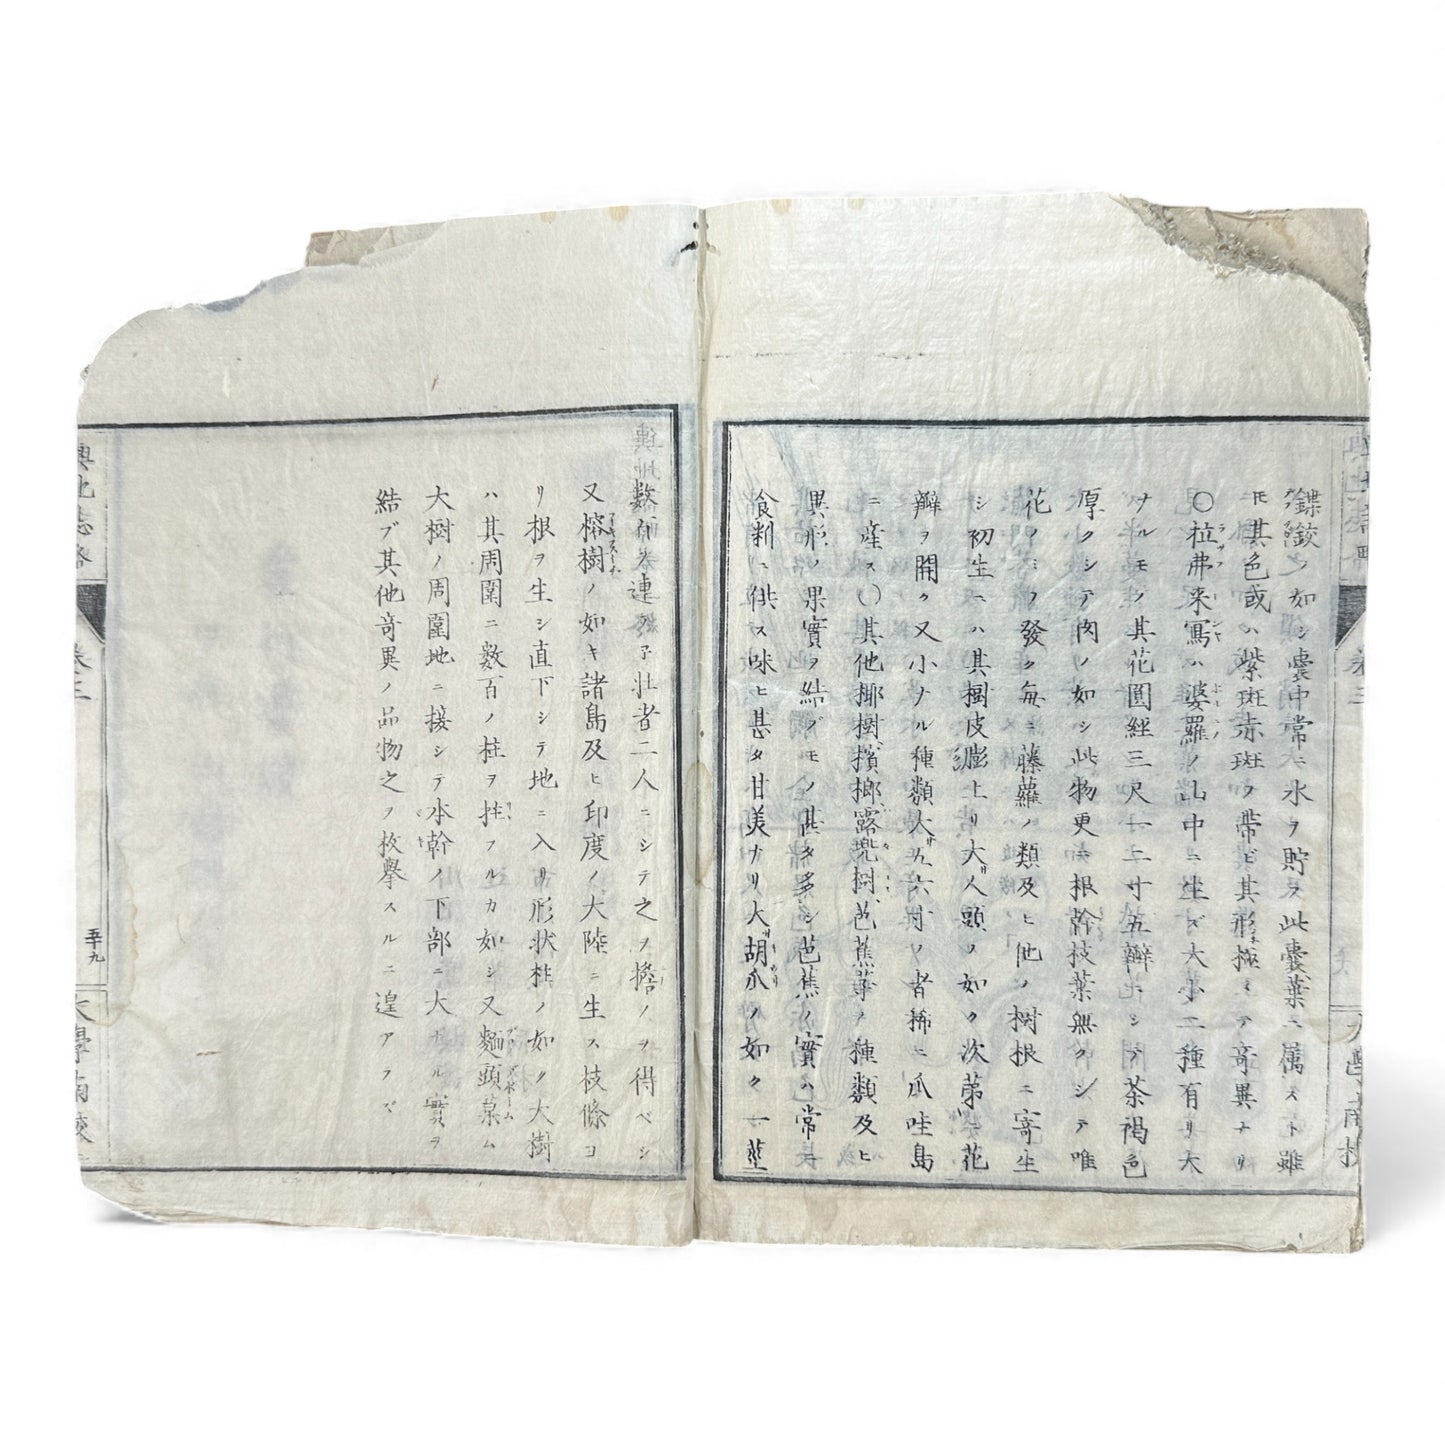 鏁鉸ノ如シ囊中常ニ水ヲ貯ヲ此囊葉ニ属スト雖
其色或ハ紫斑赤斑ヲ帯ビ其形極ミテ奇異ナリ
〇拉弗来寫ハ婆羅ノ山中ニ生ズ大小二種有リ大
ナルモノ其花圓經三尺一二寸五瓣ニシテ茶褐色
厚クシテ肉ノ如シ此物更ニ根幹枝葉無クシテ唯
花ノミヲ發ク毎ニ藤蘿ノ類及ヒ他ノ樹根ニ寄生
シ初生ニハ其樹皮膨上リ大サ人頭ノ如ク次第ニ花
瓣ヲ開ク又小ナル種類大サ五六寸ノ者稀ニ爪哇島
ニ産ス〇其他椰樹檳榔露兜樹芭蕉等ノ種類及ヒ
異形ノ果實ヲ結ブモノ甚タ多シ芭蕉ノ實ハ常ニ
食料ニ供ス味ヒ甚タ甘美ナリ大サ胡瓜ノ如ク一莖
數百連ヲ壮者二人ニシテ之ヲ擔ノヲ得ベシ
又榕樹ノ如キ諸島及ヒ印度ノ大陸ニ生ス枝條ヨ
リ根ヲ生シ直下シテ地ニ入リ形状柱ノ如ク大樹
ハ其周圍ニ數百ノ柱ヲ拄フルカ如シ又麺頭菓ム
大樹ノ周圍地ニ接シテ本幹ノ下部ニ大ナル實ヲ
結ブ其他奇異ノ品物之ヲ枚擧スルニ遑アラズ
輿地誌畧
卷三
五十九
大學南校
卷三
大學南校